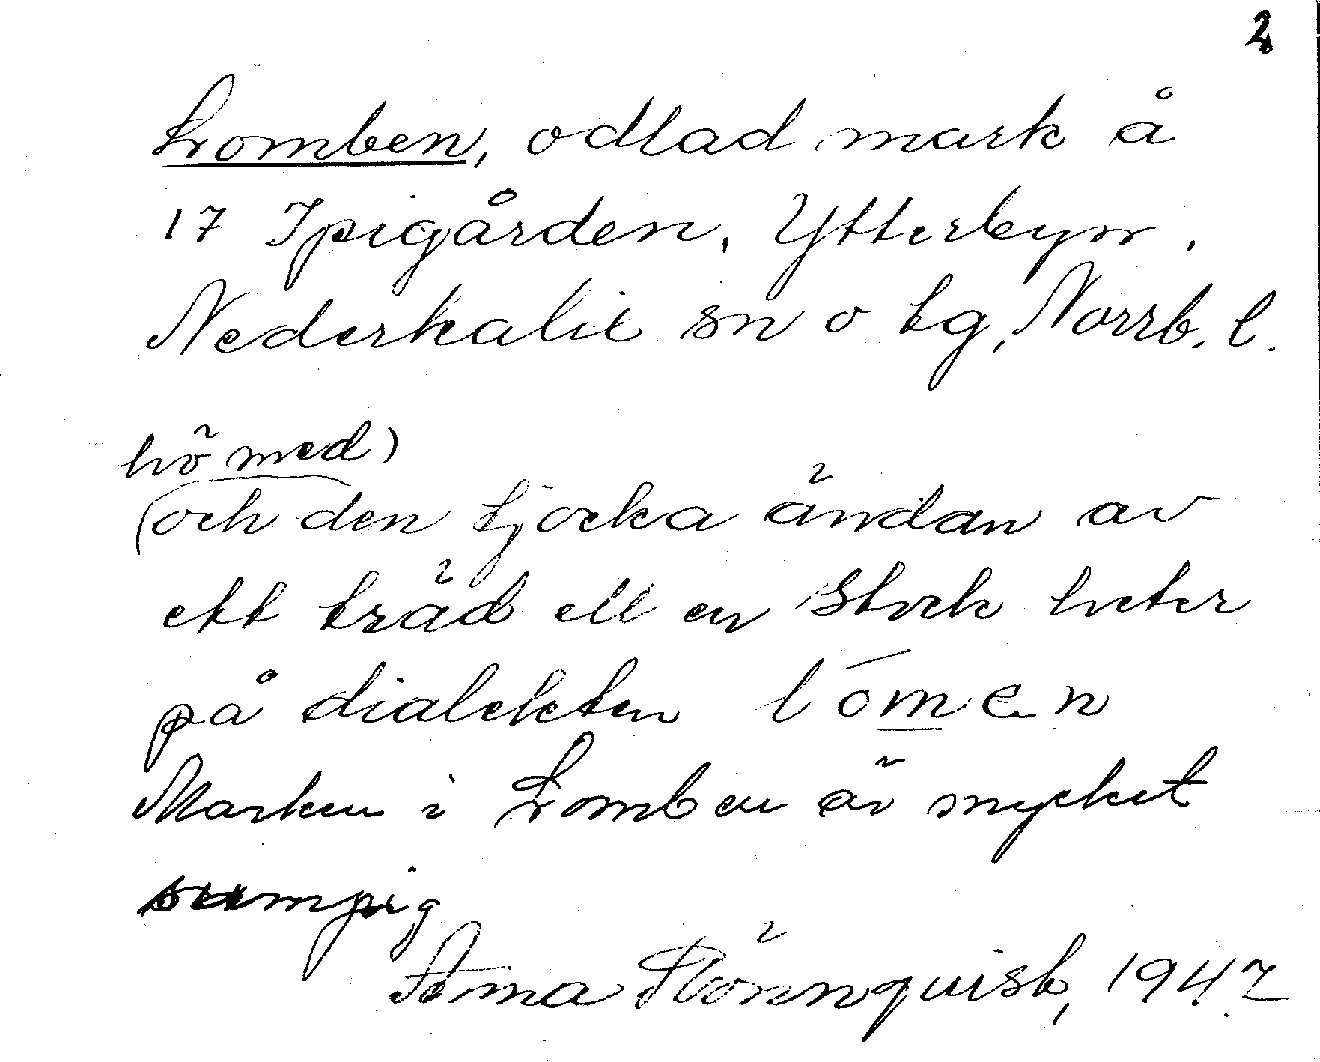 2
Lomben, odlad mark å
17 Ipigården, Ytterbyn,
Nederkalix sn o tg, Norrb. l.
hö med)
(och den tjocka ändan av
ett träd ell en stock heter
på dialekten lōmen
Marken i Lomben är mycket
sumpig
Rönnquist, 1947